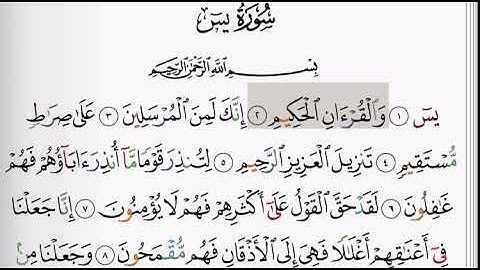 سُورَةُ يسٓ
بِسْمِ اللَّهِ الرَّحْمَٰنِ الرَّحِيمِ
يسٓ ١ وَالْقُرْءَانِ الْحَكِيمِ ٢ إِنَّكَ لَمِنَ الْمُرْسَلِينَ ٣ عَلَىٰ صِرَٰطٍ
مُّسْتَقِيمٍ ٤ تَنزِيلَ الْعَزِيزِ الرَّحِيمِ ٥ لِتُنذِرَ قَوْمًا مَّآ أُنذِرَ ءَابَآؤُهُمْ فَهُمْ
غَٰفِلُونَ ٦ لَقَدْ حَقَّ الْقَوْلُ عَلَىٰٓ أَكْثَرِهِمْ فَهُمْ لَا يُؤْمِنُونَ ٧ إِنَّا جَعَلْنَا
فِىٓ أَعْنَٰقِهِمْ أَغْلَٰلًا فَهِىَ إِلَى الْأَذْقَانِ فَهُم مُّقْمَحُونَ ٨ وَجَعَلْنَا مِنۢ